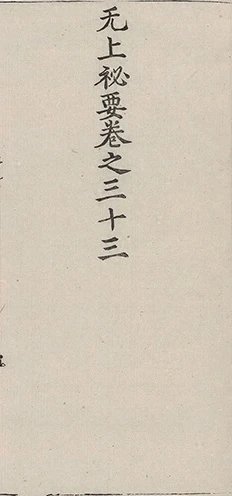 无上祕要卷之三十三